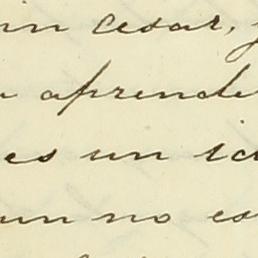 in cesar,
aprende
es un
un no es